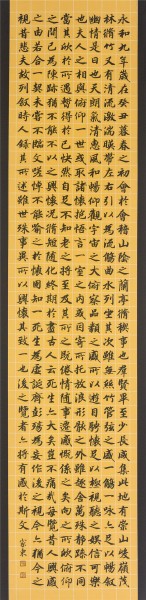 永和九年歲在癸丑暮春之初會於會稽山陰之蘭亭脩稧事也群賢畢至少長咸集此地有崇山峻嶺茂
林脩竹又有清流激湍暎帶左右引以為流觴曲水列坐其次雖無絲竹管弦之盛一觴一詠亦足以暢叙
幽情是日也天朗氣清惠風和暢仰觀宇宙之大俯察品類之盛所以遊目騁懷足以極視聽之娛信可樂
也夫人之相與俯仰一世或取諸懷抱悟言一室之內或因寄所託放浪形骸之外雖趣舍萬殊靜躁不同
當其欣於所遇暫得於己快然自足不知老之將至及其所之既倦情隨事遷感慨係之矣向之所欣俯仰
之間已為陳跡猶不能不以之興懷況脩短隨化終期於盡古人云死生亦大矣豈不痛哉每覽昔人興感
之由若合一契未嘗不臨文嗟悼不能喻之於懷固知一死生為虛誕齊彭殤為妄作後之視今亦猶今之
視昔悲夫故列叙時人錄其所述雖世殊事異所以興懷其致一也後之覽者亦將有感於斯文